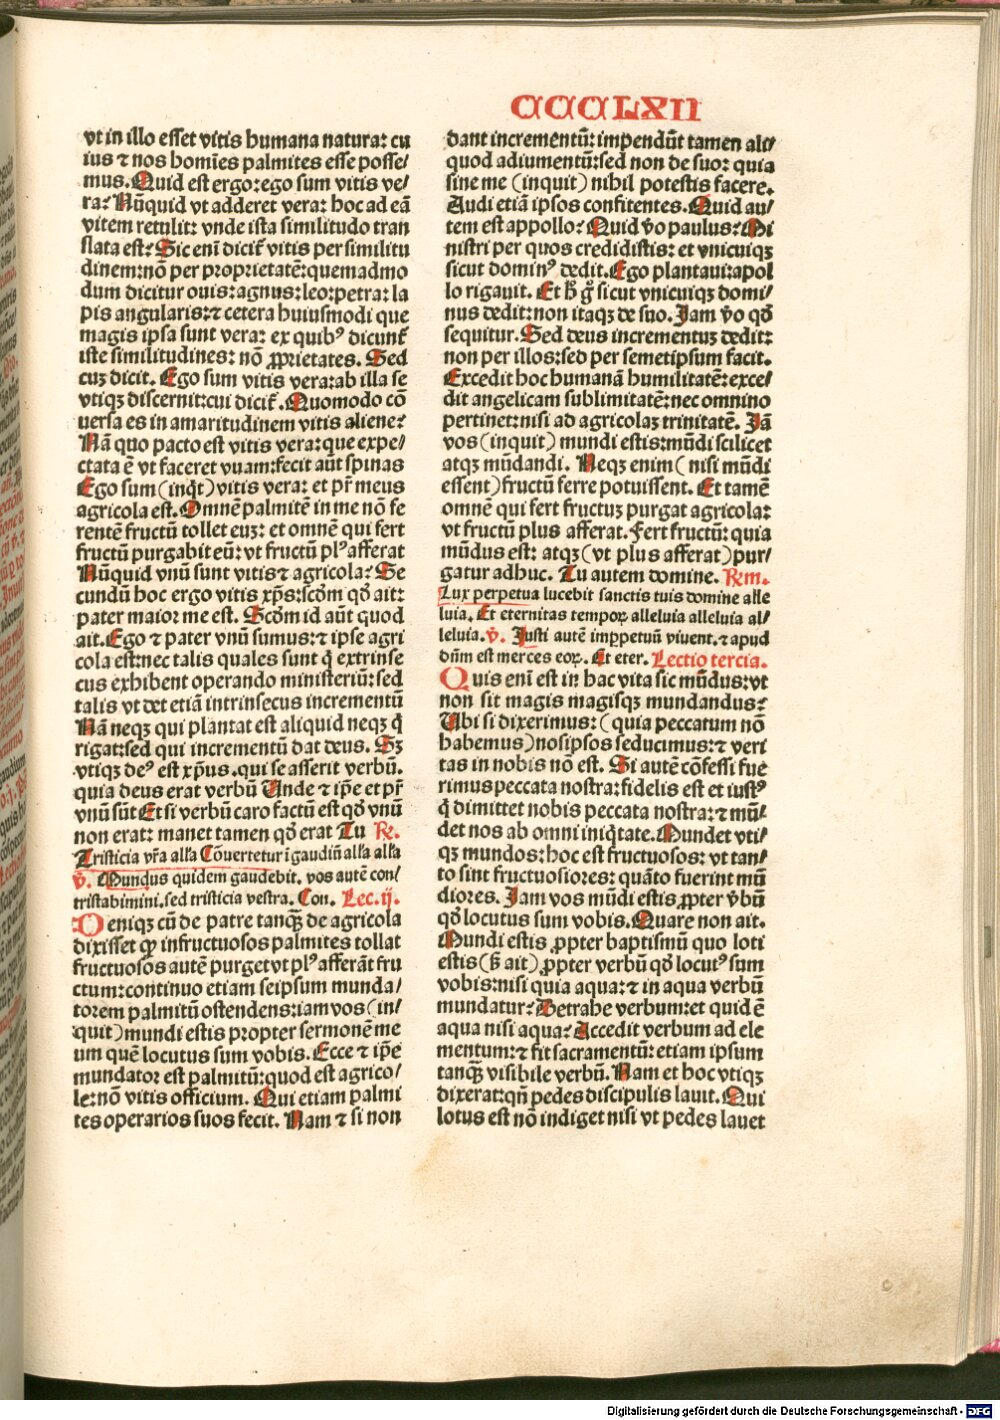 CCCCLXII
vt in illo esset vitis humana natura: cu
ius ⁊ nos homīes palmites esse posse/
mus. Quid est ergo: ego sum vitis ve/
ra? Nūquid vt adderet vera: hoc ad eā
vitem retulit: vnde ista similitudo tran
slata est? Sic enī dicit̄ vitis per similitu
dinem: nō per proprietatē: quemadmo
dum dicitur ouis: agnus: leo: petra: la
pis angularis: ⁊ cetera huiusmodi que
magis ipsa sunt vera: ex quibꝰ dicunt̄
iste similitudines: nō ꝓprietates. Sed
cuꝫ dicit. Ego sum vitis vera: ab illa se
vtiqꝫ discernit: cui dicit̄. Quomodo cō
uersa es in amaritudinem vitis aliene?
Nā quo pacto est vitis vera: que expe/
ctata ē vt faceret vuam: fecit aūt spinas
Ego sum (inq̇t) vitis vera: et pr̄ meus
agricola est. Omnē palmitē in me nō fe
rentē fructū tollet euꝫ: et omnē qui fert
fructū purgabit eū: vt fructū plꝰ afferat
Nūquid vnū sunt vitis ⁊ agricola? Se
cundū hoc ergo vitis xp̄s: scḋm qḋ ait:
pater maior me est. Scḋm id aūt quod
ait. Ego ⁊ pater vnū sumus: ⁊ ipse agri
cola est: nec talis quales sunt q̇ extrinse
cus exhibent operando ministeriū: sed
talis vt det etiā intrinsecus incrementū
Nā neqꝫ qui plantat est aliquid neqꝫ q̇
rigat: sed qui incrementū dat deus. Sꝫ
vtiqꝫ deꝰ est xp̄us. qui se asserit verbū.
quia deus erat verbū Unde ⁊ ip̄e et pr̄
vnū sūt Et si verbū caro factū est qḋ vnū
non erat: manet tamen qḋ erat Tu ℟.
Tristicia vr̄a all'a Cōuertetur ī gaudiū all'a all'a
℣. Mundus quidem gaudebit. vos autē con/
tristabimini. sed tristicia vestra. Con. Lec. ij.
Deniqꝫ cū de patre tanqꝫ̄ de agricola
dixisset ꝙ infructuosos palmites tollat
fructuosos autē purget vt plꝰ afferāt fru
ctum: continuo etiam seipsum munda/
torem palmitū ostendens: iam vos (in/
quit) mundi estis propter sermonē me
um quē locutus sum vobis. Ecce ⁊ ip̄e
mundator est palmitū: quod est agrico/
le: nō vitis officium. Qui etiam palmi
tes operarios suos fecit. Nam ⁊ si non
dant incrementū: impendūt tamen ali/
quod adiumentū: sed non de suo: quia
sine me (inquit) nihil potestis facere.
Audi etiā ipsos confitentes. Quid au/
tem est appollo? Quid v̄o paulus? Mi
nistri per quos credidistis: et vnicuiqꝫ
sicut dominꝰ dedit. Ego plantaui: apol
lo rigauit. Et h̄ g̊ sicut vnicuiqꝫ domi/
nus dedit: non itaqꝫ de suo. Jam v̄o qḋ
sequitur. Sed deus incrementuꝫ dedit:
non per illos: sed per semetipsum facit.
Excedit hoc humanā humilitatē: exce/
dit angelicam sublimitatē: nec omnino
pertinet: nisi ad agricolaꝫ trinitatē. Jā
vos (inquit) mundi estis: mūdi scilicet
atqꝫ mūdandi. Neqꝫ enim (nisi mūdi
essent) fructū ferre potuissent. Et tamē
omnē qui fert fructuꝫ purgat agricola:
vt fructū plus afferat. Fert fructū: quia
mūdus est: atqꝫ (vt plus afferat) pur/
gatur adhuc. Tu autem domine. ℟m.
Lux perpetua lucebit sanctis tuis domine alle
luia. Et eternitas tempoꝝ alleluia alleluia al/
leluia. ℣. Justi autē imꝑpetuū viuent. ⁊ apud
dn̄m est merces eoꝝ. Et eter. Lectio tercia.
Quis enī est in hac vita sic mūdus: vt
non sit magis magisqꝫ mundandus?
Ubi si dixerimus: (quia peccatum nō
habemus) nosipsos seducimus: ⁊ veri
tas in nobis nō est. Si autē cōfessi fue
rimus peccata nostra: fidelis est et iustꝰ
q̇ dimittet nobis peccata nostra: ⁊ mū/
det nos ab omni iniq̇tate. Mundet vti/
qꝫ mundos: hoc est fructuosos: vt tan/
to sint fructuosiores: quāto fuerint mū
diores. Jam vos mūdi estis ꝓpter v̄bū
qḋ locutus sum vobis. Quare non ait.
Mundi estis ꝓpter baptismū quo loti
estis (s̄ ait) ꝓpter verbū qḋ locutꝰ sum
vobis: nisi quia aqua: ⁊ in aqua verbū
mundatur? Detrahe verbum: et quid ē
aqua nisi aqua? Accedit verbum ad ele
mentum: ⁊ fit sacramentū: etiam ipsum
tanqꝫ̄ visibile verbū. Nam et hoc vtiqꝫ
dixerat: qn̄ pedes discipulis lauit. Qui
lotus est nō indiget nisi vt pedes lauet
Digitalisierung gefördert durch die Deutsche Forschungsgemeinschaft - DFG